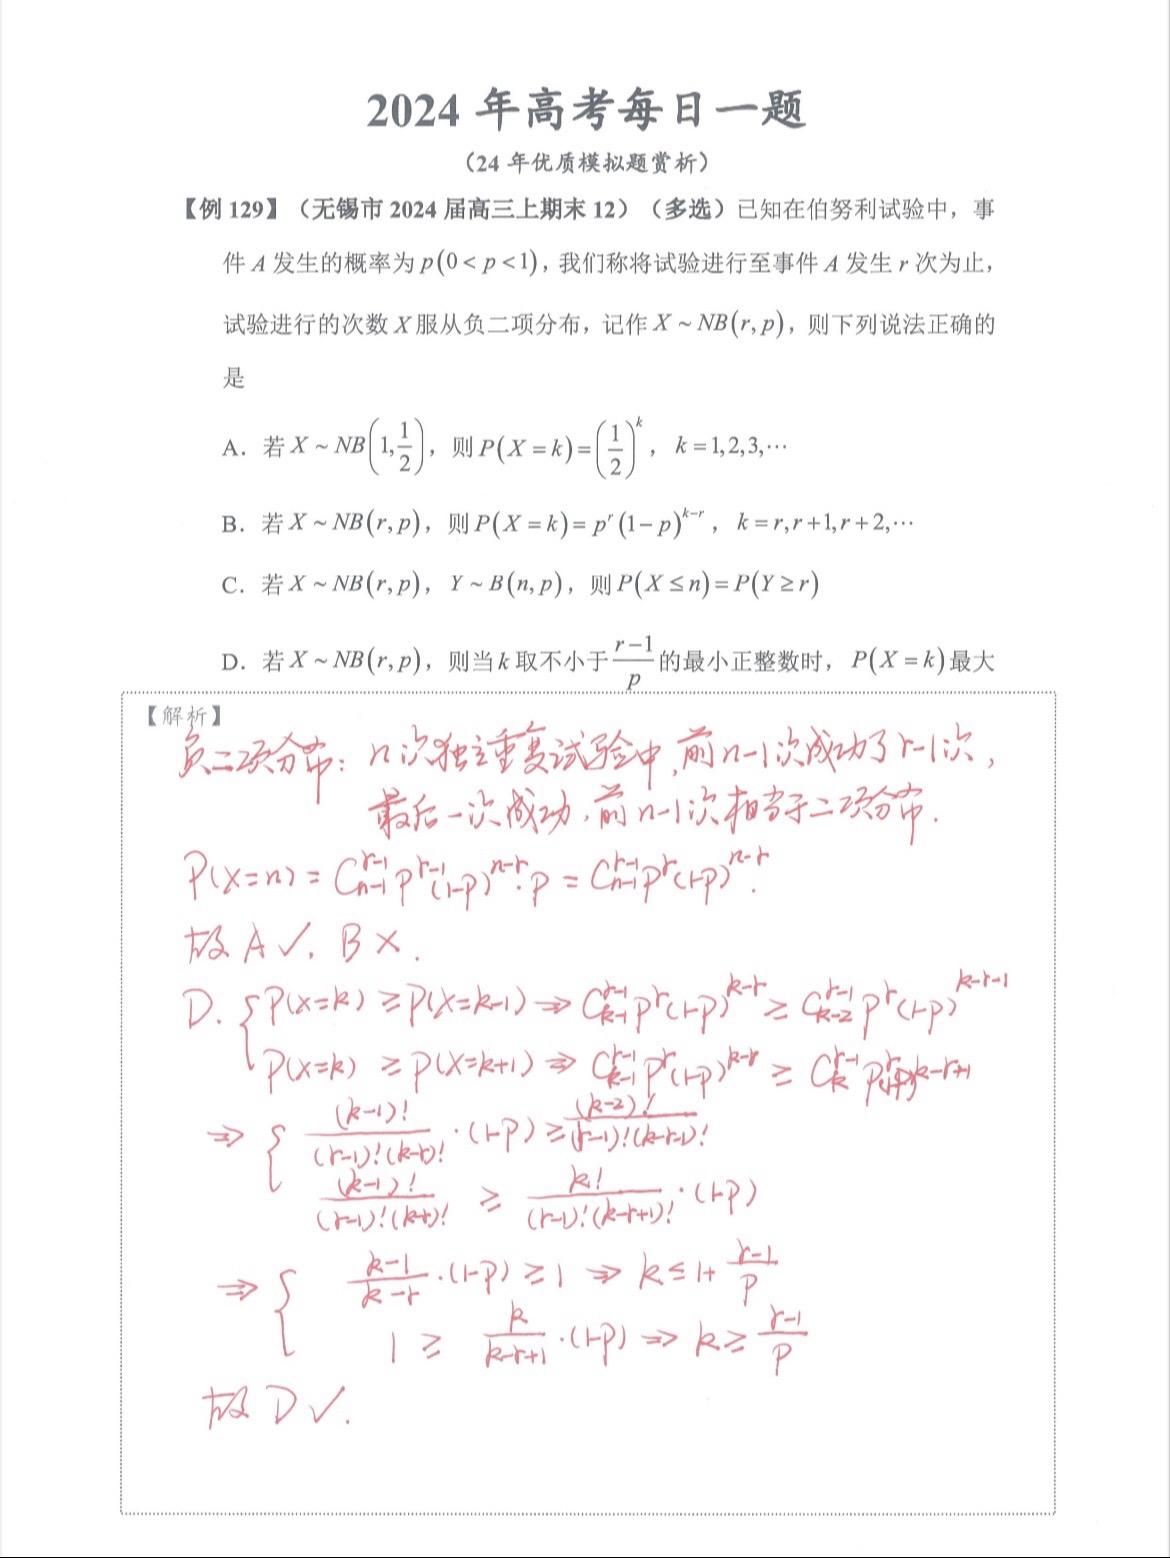 2024 年高考每日一题
（24 年优质模拟题赏析）
【例 129】（无锡市 2024 届高三上期末 12）（多选）已知在伯努利试验中，事
件 A 发生的概率为 p(0 < p < 1)，我们称将试验进行至事件 A 发生 r 次为止，
试验进行的次数 X 服从负二项分布，记作 X ~ NB(r, p)，则下列说法正确的
是
A．若 X ~ NB(1, 1/2)，则 P(X = k) = (1/2)^k，k = 1,2,3,⋯
B．若 X ~ NB(r, p)，则 P(X = k) = p^r (1−p)^{k−r}，k = r, r+1, r+2,⋯
C．若 X ~ NB(r, p)，Y ~ B(n, p)，则 P(X ≤ n) = P(Y ≥ r)
D．若 X ~ NB(r, p)，则当 k 取不小于 (r−1)/p 的最小正整数时，P(X = k) 最大
【解析】
负二项分布：n次独立重复试验中，前n-1次成功了r-1次，
最后一次成功，前n-1次相当于二项分布．
P(X=n) = C_{n-1}^{r-1} p^{r-1} (1-p)^{n-r}·p = C_{n-1}^{r-1} p^r (1-p)^{n-r}.
故 A ✓, B ×.
D. { P(X=k) ≥ P(X=k-1) ⇒ C_{k-1}^{r-1} p^r (1-p)^{k-r} ≥ C_{k-2}^{r-1} p^r (1-p)^{k-r-1}
P(X=k) ≥ P(X=k+1) ⇒ C_{k-1}^{r-1} p^r (1-p)^{k-r} ≥ C_k^{r-1} p^r (1-p)^{k-r+1}
⇒ { (k-1)!/((r-1)!(k-r)!)·(1-p) ≥ (k-2)!/((r-1)!(k-r-1)!)
(k-1)!/((r-1)!(k-r)!) ≥ k!/((r-1)!(k-r+1)!)·(1-p)
⇒ { (k-1)/(k-r)·(1-p) ≥ 1 ⇒ k ≤ 1+(r-1)/p
1 ≥ k/(k-r+1)·(1-p) ⇒ k ≥ (r-1)/p
故 D ✓.